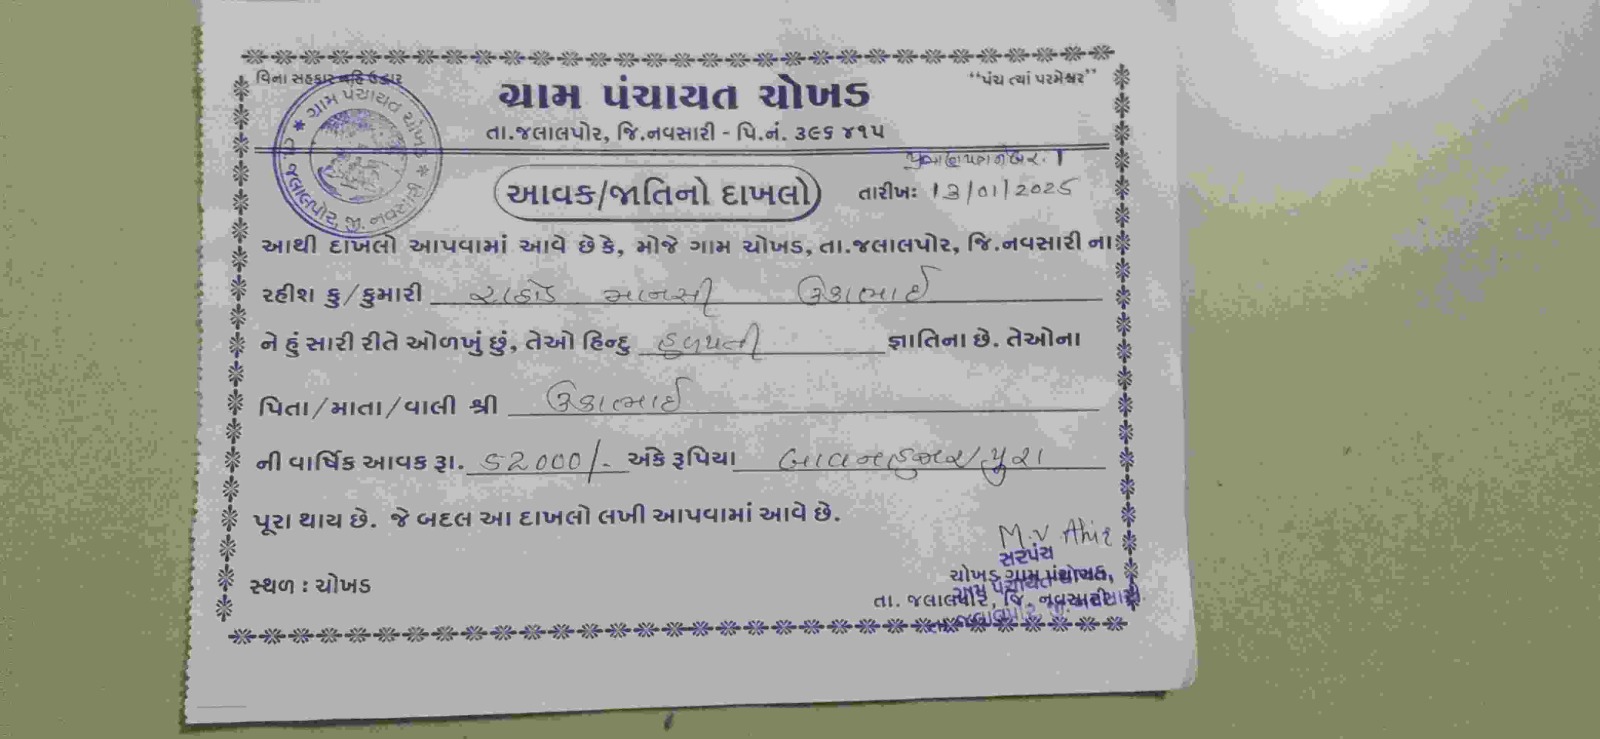 વિના સહકાર નહિ ઉદ્ધાર
"પંચ ત્યાં પરમેશ્વર"
ગ્રામ પંચાયત ચોખડ
તા.જલાલપોર, જિ.નવસારી - પિ.નં. ૩૯૬ ૪૧૫
ગ્રામ પંચાયત ચોખડ * જી. નવસારી * તા. જલાલપોર,
આવક/જાતિનો દાખલો
તારીખ: 13/01/2025
આથી દાખલો આપવામાં આવે છે કે, મોજે ગામ ચોખડ, તા.જલાલપોર, જિ.નવસારી ના
રહીશ કુ/કુમારી રાઠોડ માનસી ઉકાભાઈ
ને હું સારી રીતે ઓળખું છું, તેઓ હિન્દુ હળપતી જ્ઞાતિના છે. તેઓના
પિતા/માતા/વાલી શ્રી ઉકાભાઈ
ની વાર્ષિક આવક રૂા. 52000/- અંકે રૂપિયા બાવન હજાર પુરા
પૂરા થાય છે. જે બદલ આ દાખલો લખી આપવામાં આવે છે.
M.V Ahir
સરપંચ
સ્થળ : ચોખડ
ચોખડ ગ્રામ પંચાયત,
તા. જલાલપોર, જિ. નવસારી